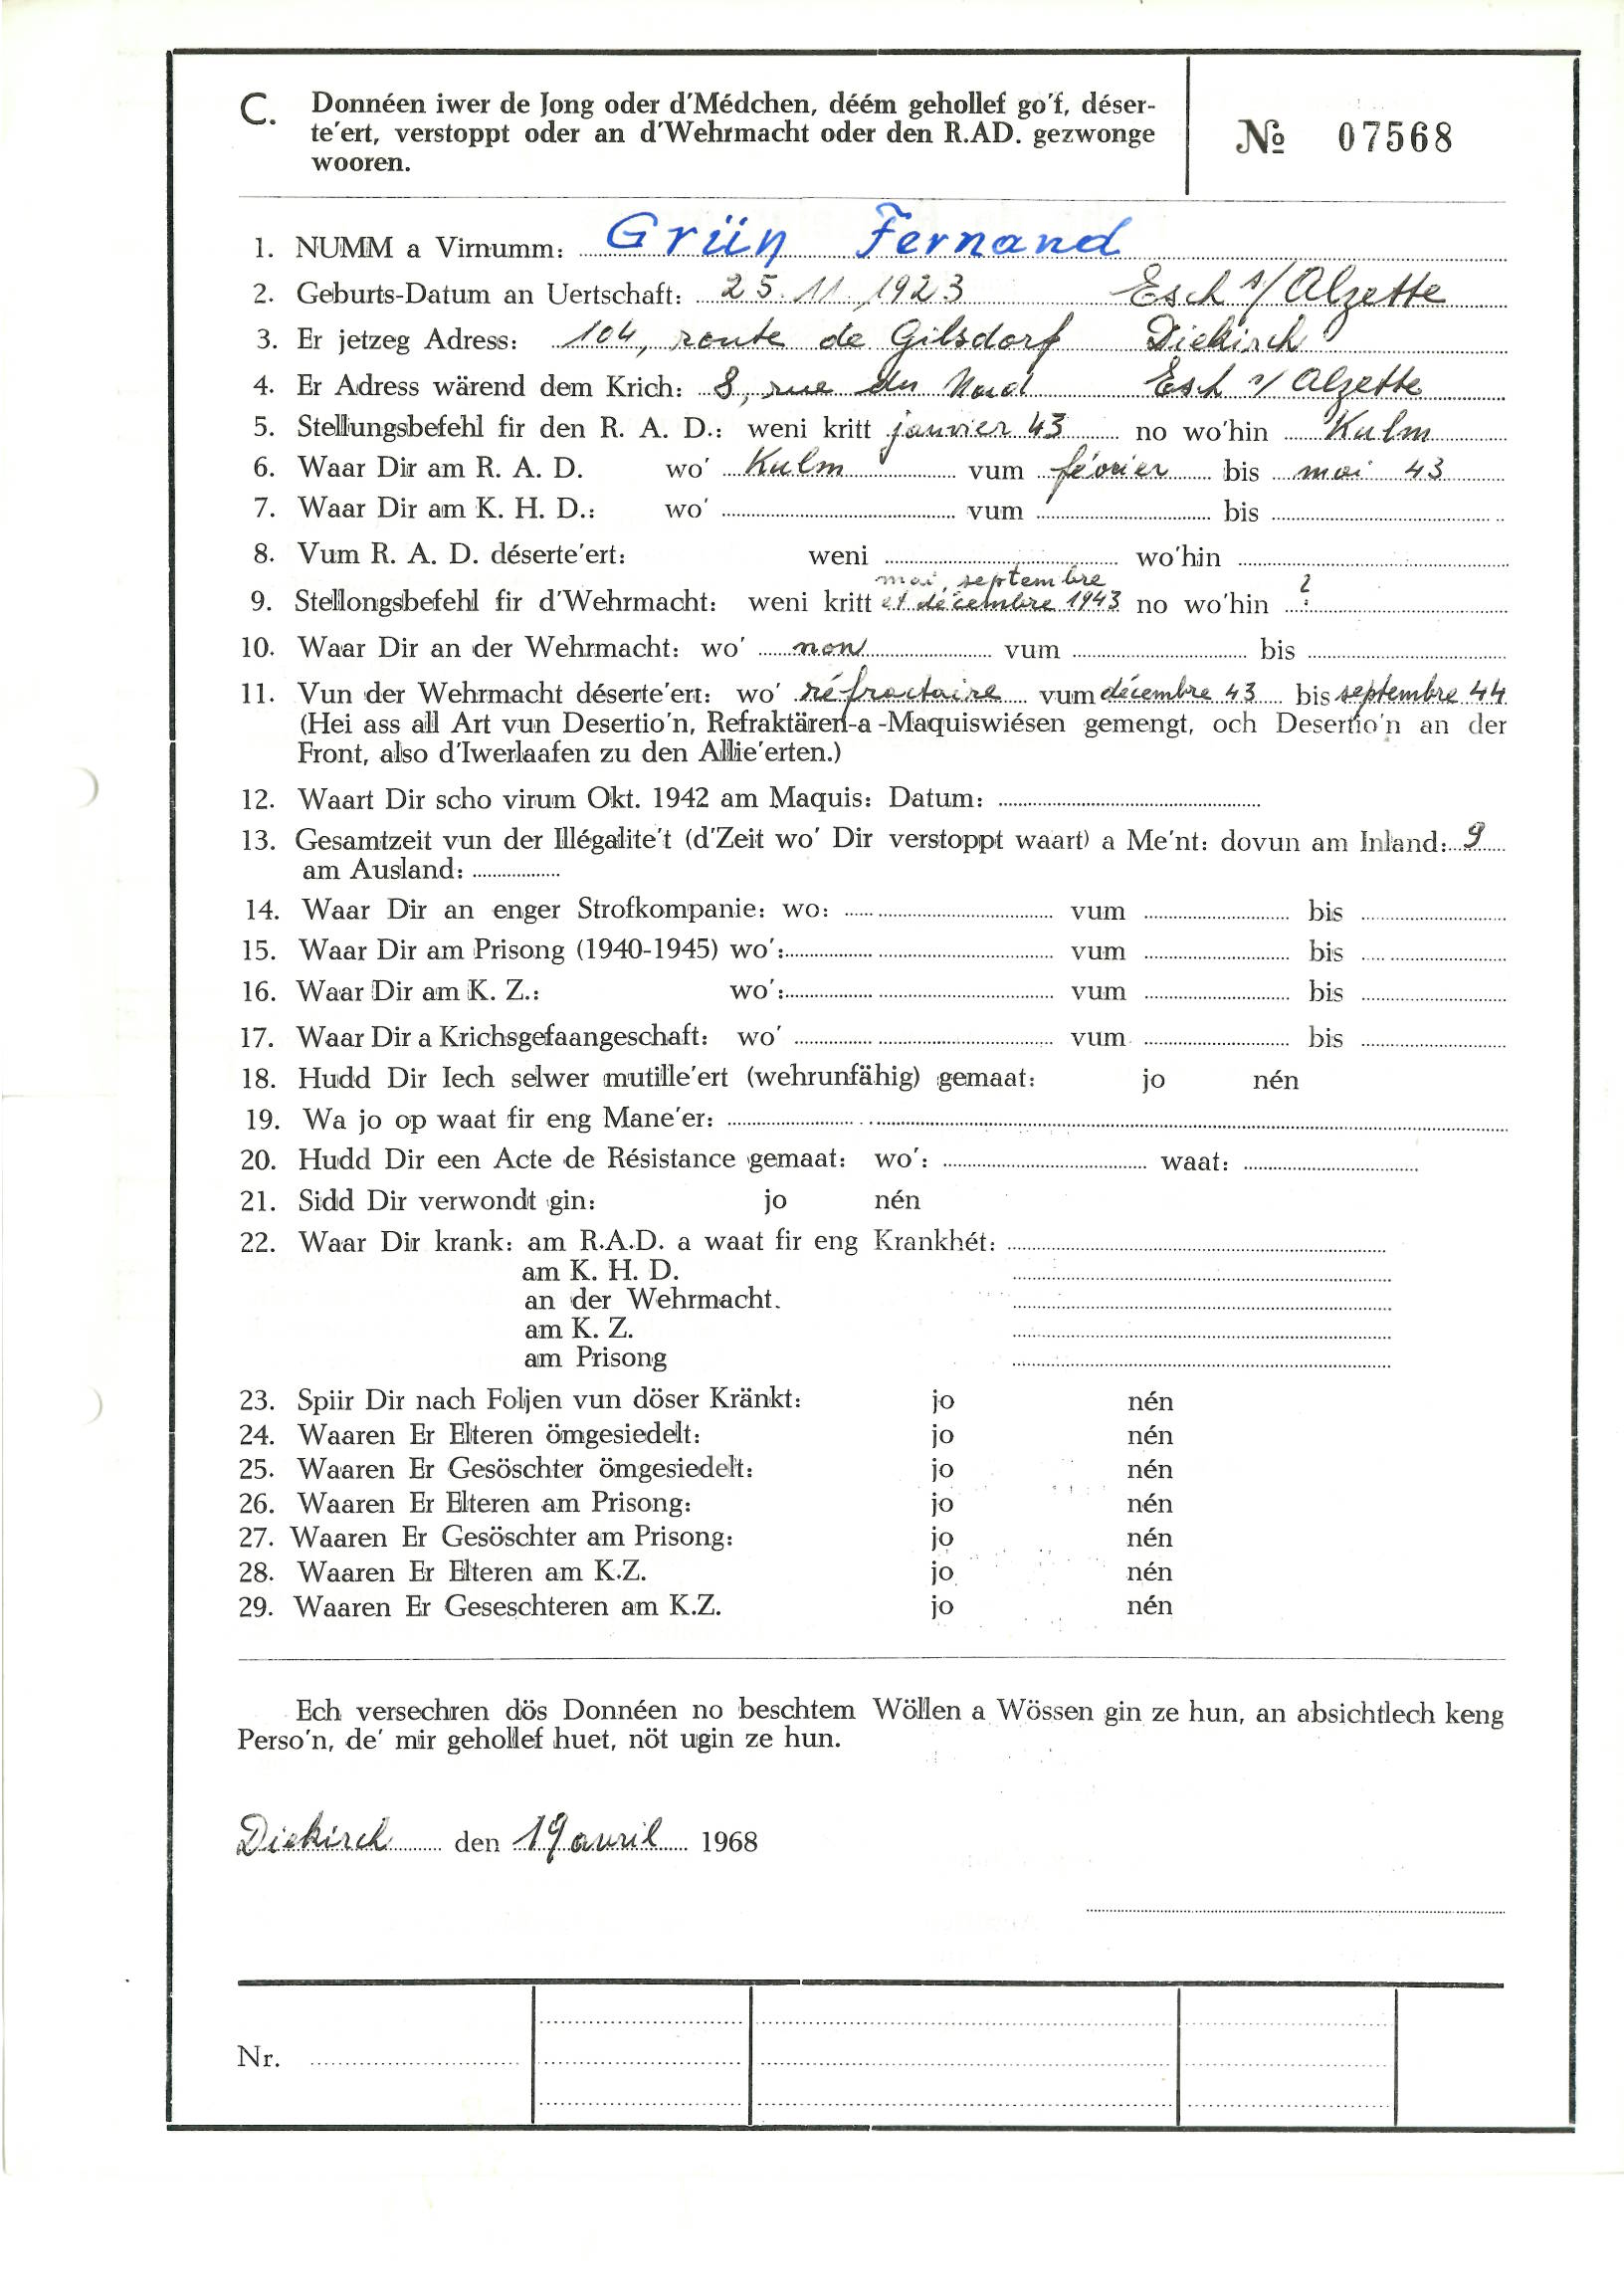 C. Donnéen iwer de Jong oder d'Médchen, déém gehollef go'f, déser-
te'ert, verstoppt oder an d'Wehrmacht oder den R.AD. gezwonge
wooren.
№ 07568
1. NUMM a Virnumm: Grün Fernand
2. Geburts-Datum an Uertschaft: 25.11.1923 Esch s/Alzette
3. Er jetzeg Adress: 104, route de Gilsdorf Diekirch
4. Er Adress wärend dem Krich: 8, rue du Nord Esch s/Alzette
5. Stellungsbefehl fir den R. A. D.: weni kritt janvier 43 no wo'hin Kulm
6. Waar Dir am R. A. D. wo' Kulm vum février bis mai 43
7. Waar Dir am K. H. D.: wo' vum bis
8. Vum R. A. D. déserte'ert: weni wo'hin
mai, septembre
9. Stellongsbefehl fir d'Wehrmacht: weni kritt et décembre 1943 no wo'hin ?
10. Waar Dir an der Wehrmacht: wo' non vum bis
11. Vun der Wehrmacht déserte'ert: wo' réfractaire vum décembre 43 bis septembre 44
(Hei ass all Art vun Desertio'n, Refraktären-a -Maquiswiésen gemengt, och Desertio'n an der
Front, also d'Iwerlaafen zu den Allie'erten.)
12. Waart Dir scho virum Okt. 1942 am Maquis: Datum:
13. Gesamtzeit vun der Illégalite't (d'Zeit wo' Dir verstoppt waart) a Me'nt: dovun am Inland: 9
am Ausland:
14. Waar Dir an enger Strofkompanie: wo: vum bis
15. Waar Dir am Prisong (1940-1945) wo': vum bis
16. Waar Dir am K. Z.: wo': vum bis
17. Waar Dir a Krichsgefaangeschaft: wo' vum bis
18. Hudd Dir Iech selwer mutille'ert (wehrunfähig) gemaat: jo nén
19. Wa jo op waat fir eng Mane'er:
20. Hudd Dir een Acte de Résistance gemaat: wo': waat:
21. Sidd Dir verwondt gin: jo nén
22. Waar Dir krank: am R.A.D. a waat fir eng Krankhét:
am K. H. D.
an der Wehrmacht.
am K. Z.
am Prisong
23. Spiir Dir nach Foljen vun döser Kränkt: jo nén
24. Waaren Er Elteren ömgesiedelt: jo nén
25. Waaren Er Gesöschter ömgesiedelt: jo nén
26. Waaren Er Elteren am Prisong: jo nén
27. Waaren Er Gesöschter am Prisong: jo nén
28. Waaren Er Elteren am K.Z. jo nén
29. Waaren Er Geseschteren am K.Z. jo nén
Ech versechren dös Donnéen no beschtem Wöllen a Wössen gin ze hun, an absichtlech keng
Perso'n, de' mir gehollef huet, nöt ugin ze hun.
Diekirch den 19 avril 1968
Nr.